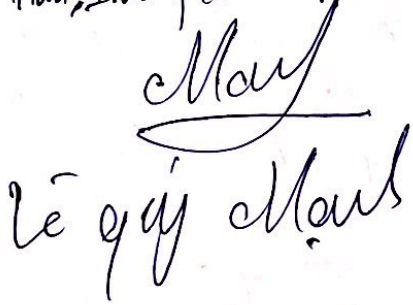 Manh
Lê quý Mạnh